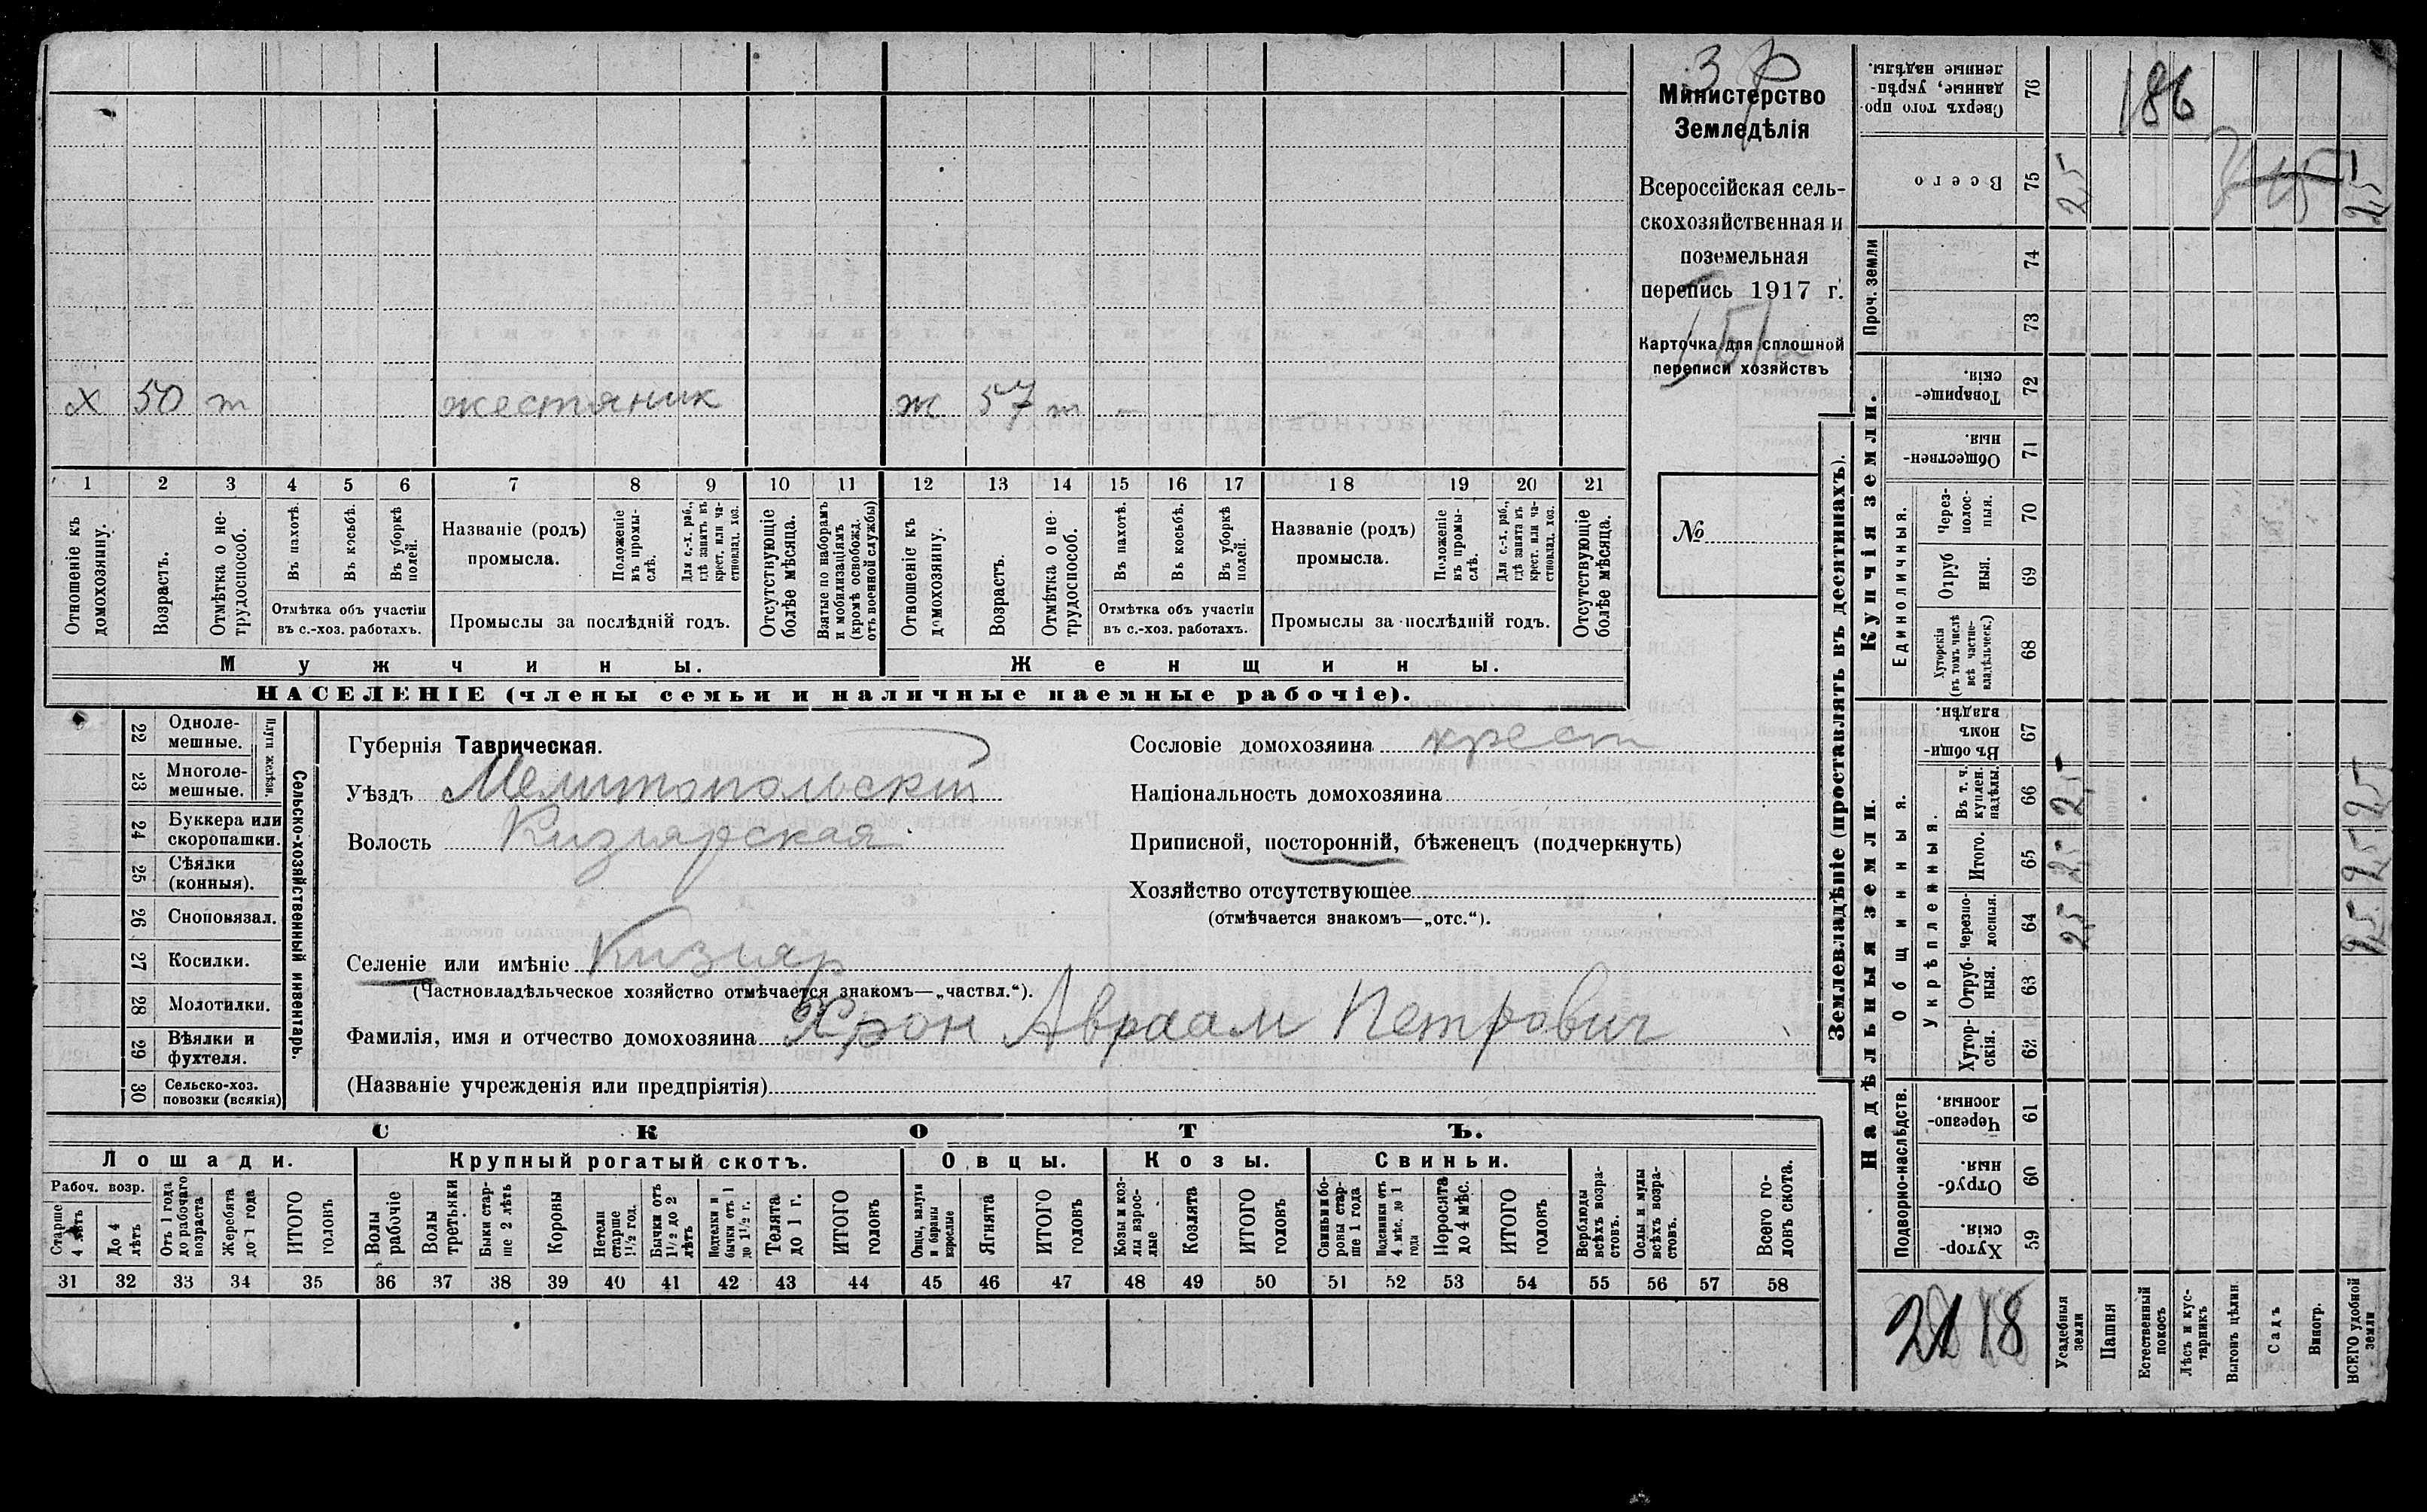 Министерство
Земледѣлія
Всероссійская сель-
скохозяйственная и
поземельная
перепись 1917 г.
Карточка для сплошной
переписи хозяйствъ
№
х 50 т жестяник ж 57 т –
1 2 3 4 5 6 7 8 9 10 11 12 13 14 15 16 17 18 19 20 21
Отношеніе къ домохозяину.
Возрастъ.
Отмѣтка о не-трудоспособ.
Въ пахотѣ.
Въ косьбѣ.
Въ уборкѣ полей.
Отмѣтка объ участіи
въ с.-хоз. работахъ.
Названіе (родъ)
промысла.
Положеніе въ промы-слѣ.
Для с.-х. раб., гдѣ занятъ въ крест. или ча-стновлад. хоз.
Промыслы за послѣдній годъ.
Отсутствующіе болѣе мѣсяца.
Взятые по наборамъ и мобилизаціямъ (кромѣ освобожд. отъ военной службы)
Отношеніе къ домохозяину.
Возрастъ.
Отмѣтка о не-трудоспособ.
Въ пахотѣ.
Въ косьбѣ.
Въ уборкѣ полей.
Отмѣтка объ участіи
въ с.-хоз. работахъ.
Названіе (родъ)
промысла.
Положеніе въ промы-слѣ.
Для с.-х. раб., гдѣ занята въ крест. или ча-стновлад. хоз.
Промыслы за послѣдній годъ.
Отсутствующіе болѣе мѣсяца.
Мужчины.
Женщины.
НАСЕЛЕНІЕ (члены семьи и наличные наемные рабочіе).
22 Одноле-мешные.
23 Многоле-мешные.
Плуги желѣзн.
24 Буккера или скоропашки.
25 Сѣялки (конныя).
26 Сноповязал.
27 Косилки.
28 Молотилки.
29 Вѣялки и фухтеля.
30 Сельско-хоз. повозки (всякія)
Сельско-хозяйственный инвентарь.
Губернія Таврическая.
Уѣздъ Мелитопольскій
Волость Кизиярская
Селеніе или имѣніе Кизияр
(Частновладѣльческое хозяйство отмѣчается знакомъ—„частвл.“).
Фамилія, имя и отчество домохозяина Хрон Авраам Петрович
(Названіе учрежденія или предпріятія)
Сословіе домохозяина крест
Національность домохозяина
Приписной, посторонній, бѣженецъ (подчеркнуть)
Хозяйство отсутствующее
(отмѣчается знакомъ—„отс.“).
СКОТЪ.
Лошади.
Крупный рогатый скотъ.
Овцы.
Козы.
Свиньи.
Рабоч. возр.
Старше 4 лѣтъ
До 4 лѣтъ
Отъ 1 года до рабочаго возраста
Жеребята до 1 года
ИТОГО головъ
Волы рабочіе
Волы третьяки
Быки стар-ше 2 лѣтъ
Коровы
Нетели старше 1½ год.
Бычки отъ 1½ до 2 лѣтъ
Подтелки и бычки отъ 1 до 1½ г.
Телята до 1 г.
ИТОГО головъ
Овцы, валухи и бараны взрослые
Ягнята
ИТОГО головъ
Козы и коз-лы взрос-лые
Козлята
ИТОГО головъ
Свиньи и бо-ровы стар-ше 1 года
Подсвинки отъ 4 мѣс. до 1 года
Поросята до 4 мѣс.
ИТОГО головъ
Верблюды всѣхъ возра-стовъ.
Ослы и мулы всѣхъ возра-стовъ.
Всего го-ловъ скота.
31 32 33 34 35 36 37 38 39 40 41 42 43 44 45 46 47 48 49 50 51 52 53 54 55 56 57 58
Землевладѣніе (проставлять въ десятинахъ).
Купчія земли.
Надѣльныя земли.
Проч. земли
Единоличныя.
Общинныя.
Укрѣпленныя.
Подворно-наслѣдств.
Сверхъ того про-данные, укрѣп-ленные надѣлы. 76 186
Всего 75 25 25
74
73
Товарище-скія. 72
Обществен-ныя. 71
Через-полос-ныя. 70
Отруб ныя. 69
Хуторскія (въ томъ числѣ всѣ частно-владѣльческ.) 68
Въ общин-номъ владѣн. 67
Въ т. ч. куплен. надѣлы. 66 25 25
Итого. 65 25 25
Черезпо-лосныя. 64 25 25
Отруб-ныя. 63
Хутор-скія. 62
Черезпо-лосныя. 61
Отруб-ныя. 60
Хутор-скія. 59
2118
Усадебныя земли
Пашня
Естественный покосъ
Лѣсъ и кус-тарникъ
Выгонъ цѣлин.
Садъ
Виногр.
ВСЕГО удобной земли